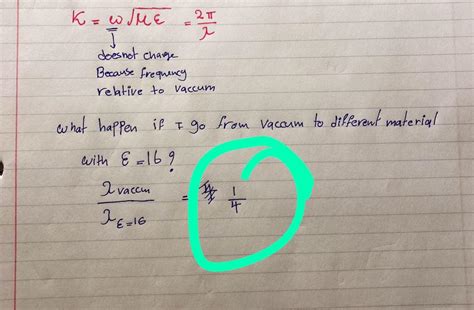 K = ω√με = 2π/λ
doesnot change
Because frequency
relative to vaccum
what happen if I go from vaccum to different material
with ε=16 ?
λvaccm/λε=16 = 1/4